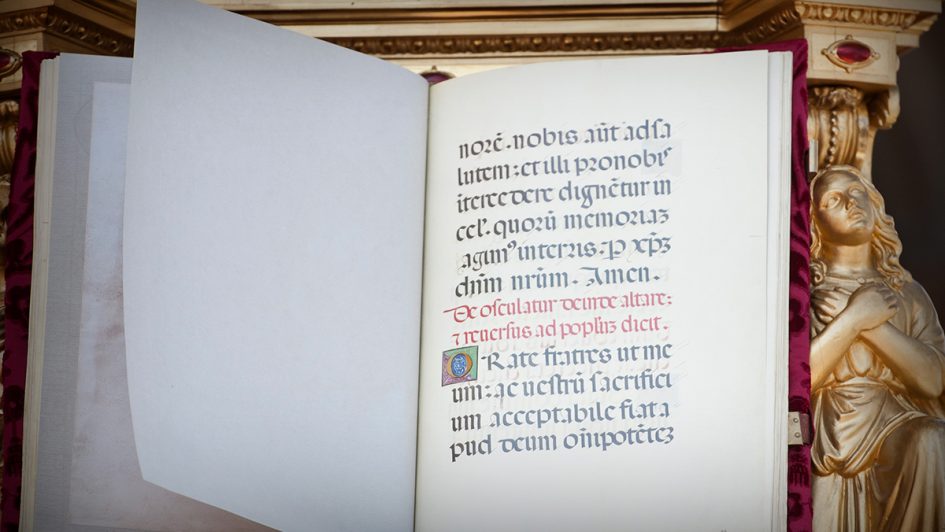 norē. nobis aūt ad sa
lutem: et illi pro nobis
itercedere dignētur in
cel'. quorū memoriaz
agimꝰ in terris. P xp̄z
dn̄m nr̄um. Amen.
De osculatur deinde altare:
⁊ reuersus ad popl'z dicit.
ORate fratres ut me
um: ac uestrū sacrifici
um acceptabile fiat a
pud deum om̄ipotētez